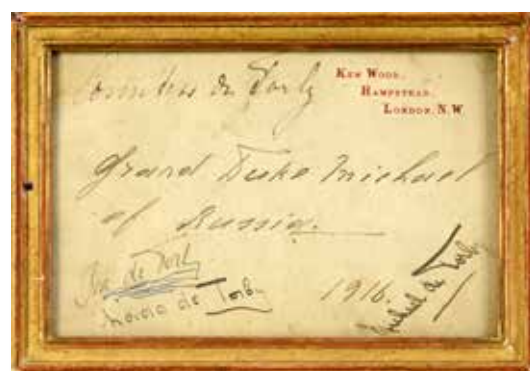 Countess de Torby
KEN WOOD,
HAMPSTEAD,
LONDON. N.W.
Grand Duke Michael
of Russia.
Zia de Torby
Nada de Torby
1916.
Michael de Torby